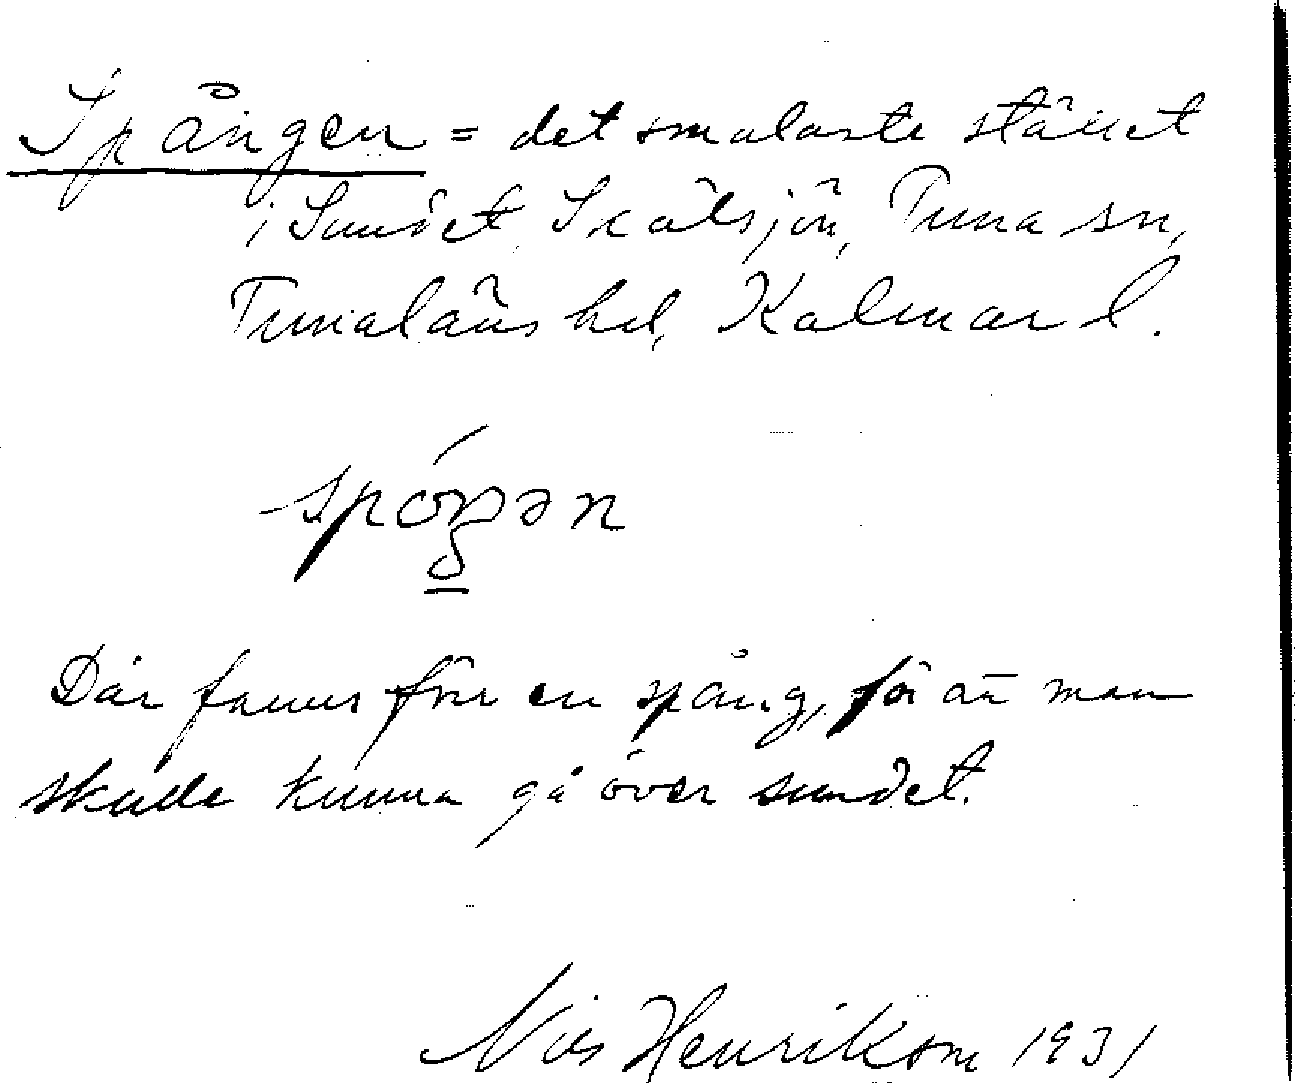 Spången = det smalaste stället
i Sundet, Skälsjön, Tuna sn,
Tunaläns hd, Kalmar l.
spóŋən
Där fanns förr en spång, för att man
skulle kunna gå över sundet.
Nils Henrikson 1931